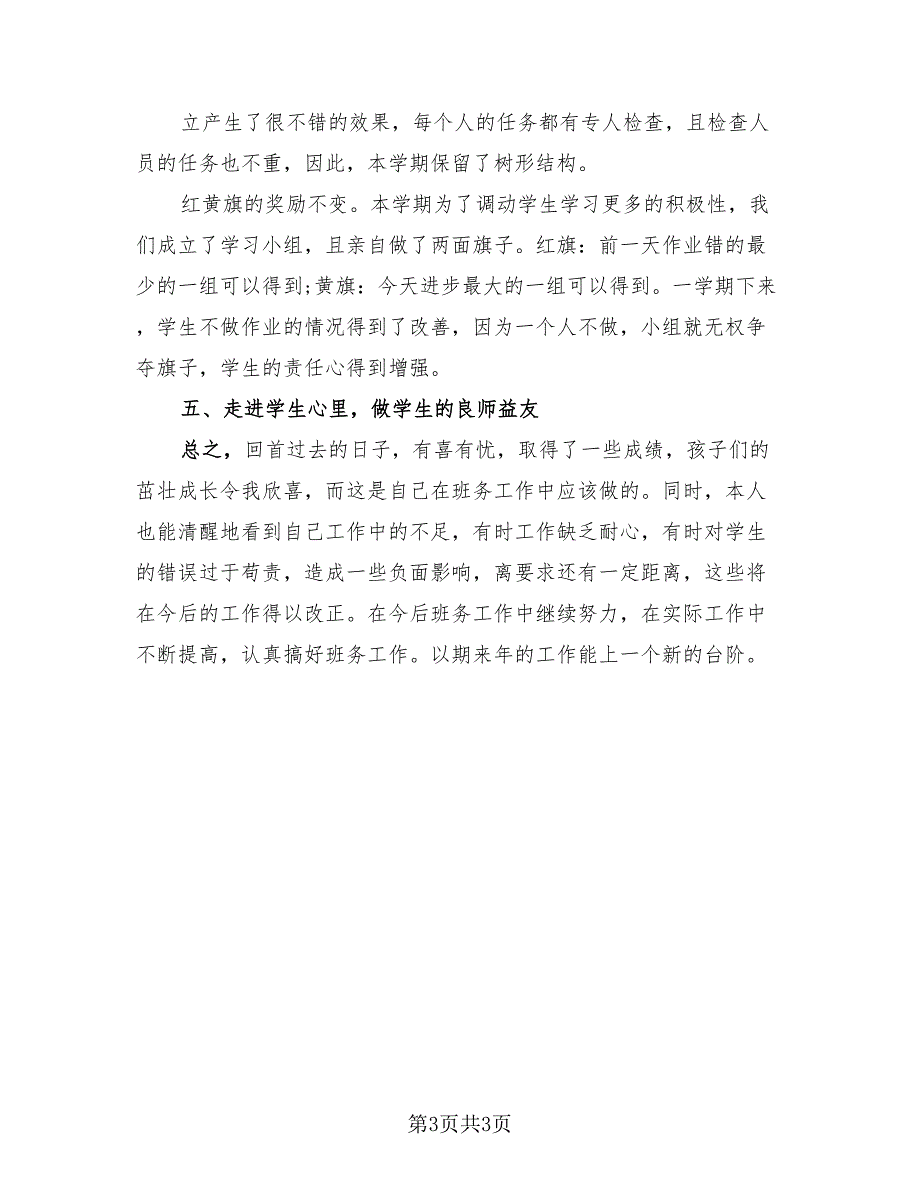 立产生了很不错的效果，每个人的任务都有专人检查，且检查人
员的任务也不重，因此，本学期保留了树形结构。
红黄旗的奖励不变。本学期为了调动学生学习更多的积极性，我
们成立了学习小组，且亲自做了两面旗子。红旗：前一天作业错的最
少的一组可以得到;黄旗：今天进步最大的一组可以得到。一学期下来
，学生不做作业的情况得到了改善，因为一个人不做，小组就无权争
夺旗子，学生的责任心得到增强。
五、走进学生心里，做学生的良师益友
总之，回首过去的日子，有喜有忧，取得了一些成绩，孩子们的
茁壮成长令我欣喜，而这是自己在班务工作中应该做的。同时，本人
也能清醒地看到自己工作中的不足，有时工作缺乏耐心，有时对学生
的错误过于苟责，造成一些负面影响，离要求还有一定距离，这些将
在今后的工作得以改正。在今后班务工作中继续努力，在实际工作中
不断提高，认真搞好班务工作。以期来年的工作能上一个新的台阶。
第3页共3页